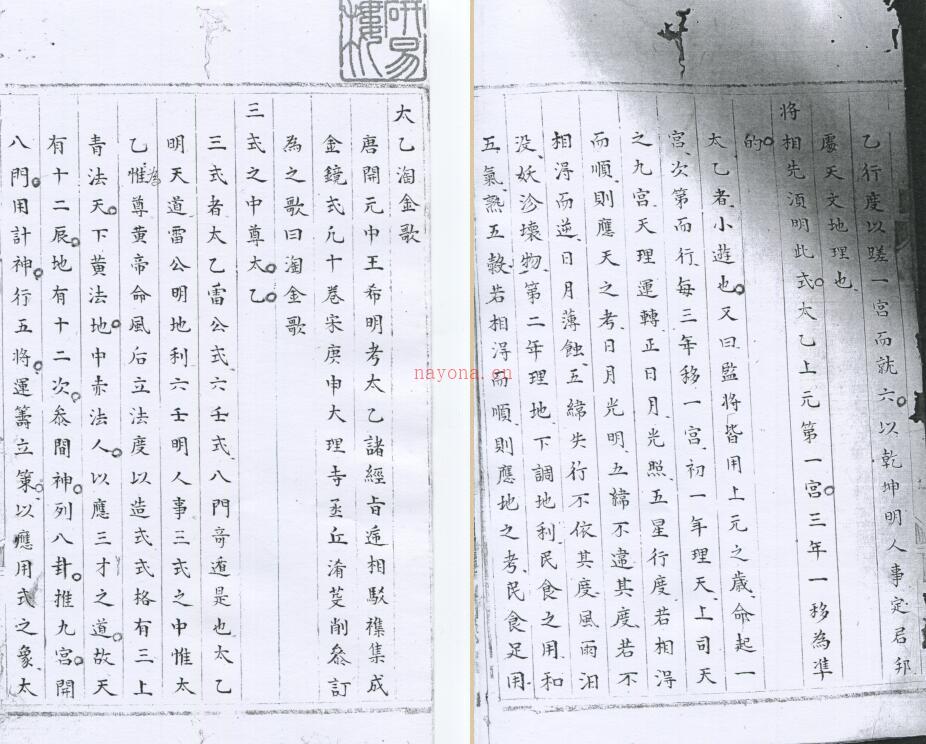 研易樓
太乙淘金歌
唐開元中王希明考太乙諸經㫖遞相駁襍集成
金鏡式凡十卷宋庚申大理寺丞丘濬芟削叅訂
為之歌曰淘金歌
三式之中尊太乙
三式者太乙雷公式六壬式八門竒遁是也太乙
明天道雷公明地利六壬明人事三式之中惟太
乙惟為尊黃帝命風后立法度以造式式格有三上
青法天下黃法地中赤法人以應三才之道故天
有十二辰地有十二次叅間神列八卦推九宮開
八門用計神行五將運籌立策以應用式之象太
乙行度以蹉一宮而就六以乾坤明人事定君邦
慶天文地理也
将相先須明此式太乙上元第一宮三年一移為準
的
太乙者小遊也又曰監将皆用上元之歲命起一
宮次第而行每三年移一宮初一年理天上司天
之九宮天理運轉正日月光照五星行度若相得
而順則應天之考日月光明五緯不違其度若不
相得而逆日月薄蝕五緯失行不依其度風雨汨
没妖沴壞物第二年理地下調地利民食之用和
五氣熟五穀若相得而順則應地之考民食足用
nayona.cn